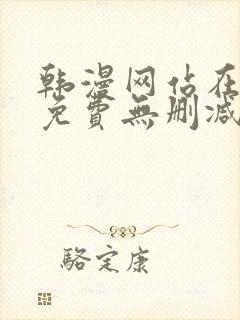 韩漫网站在
免費無删减
駱定康